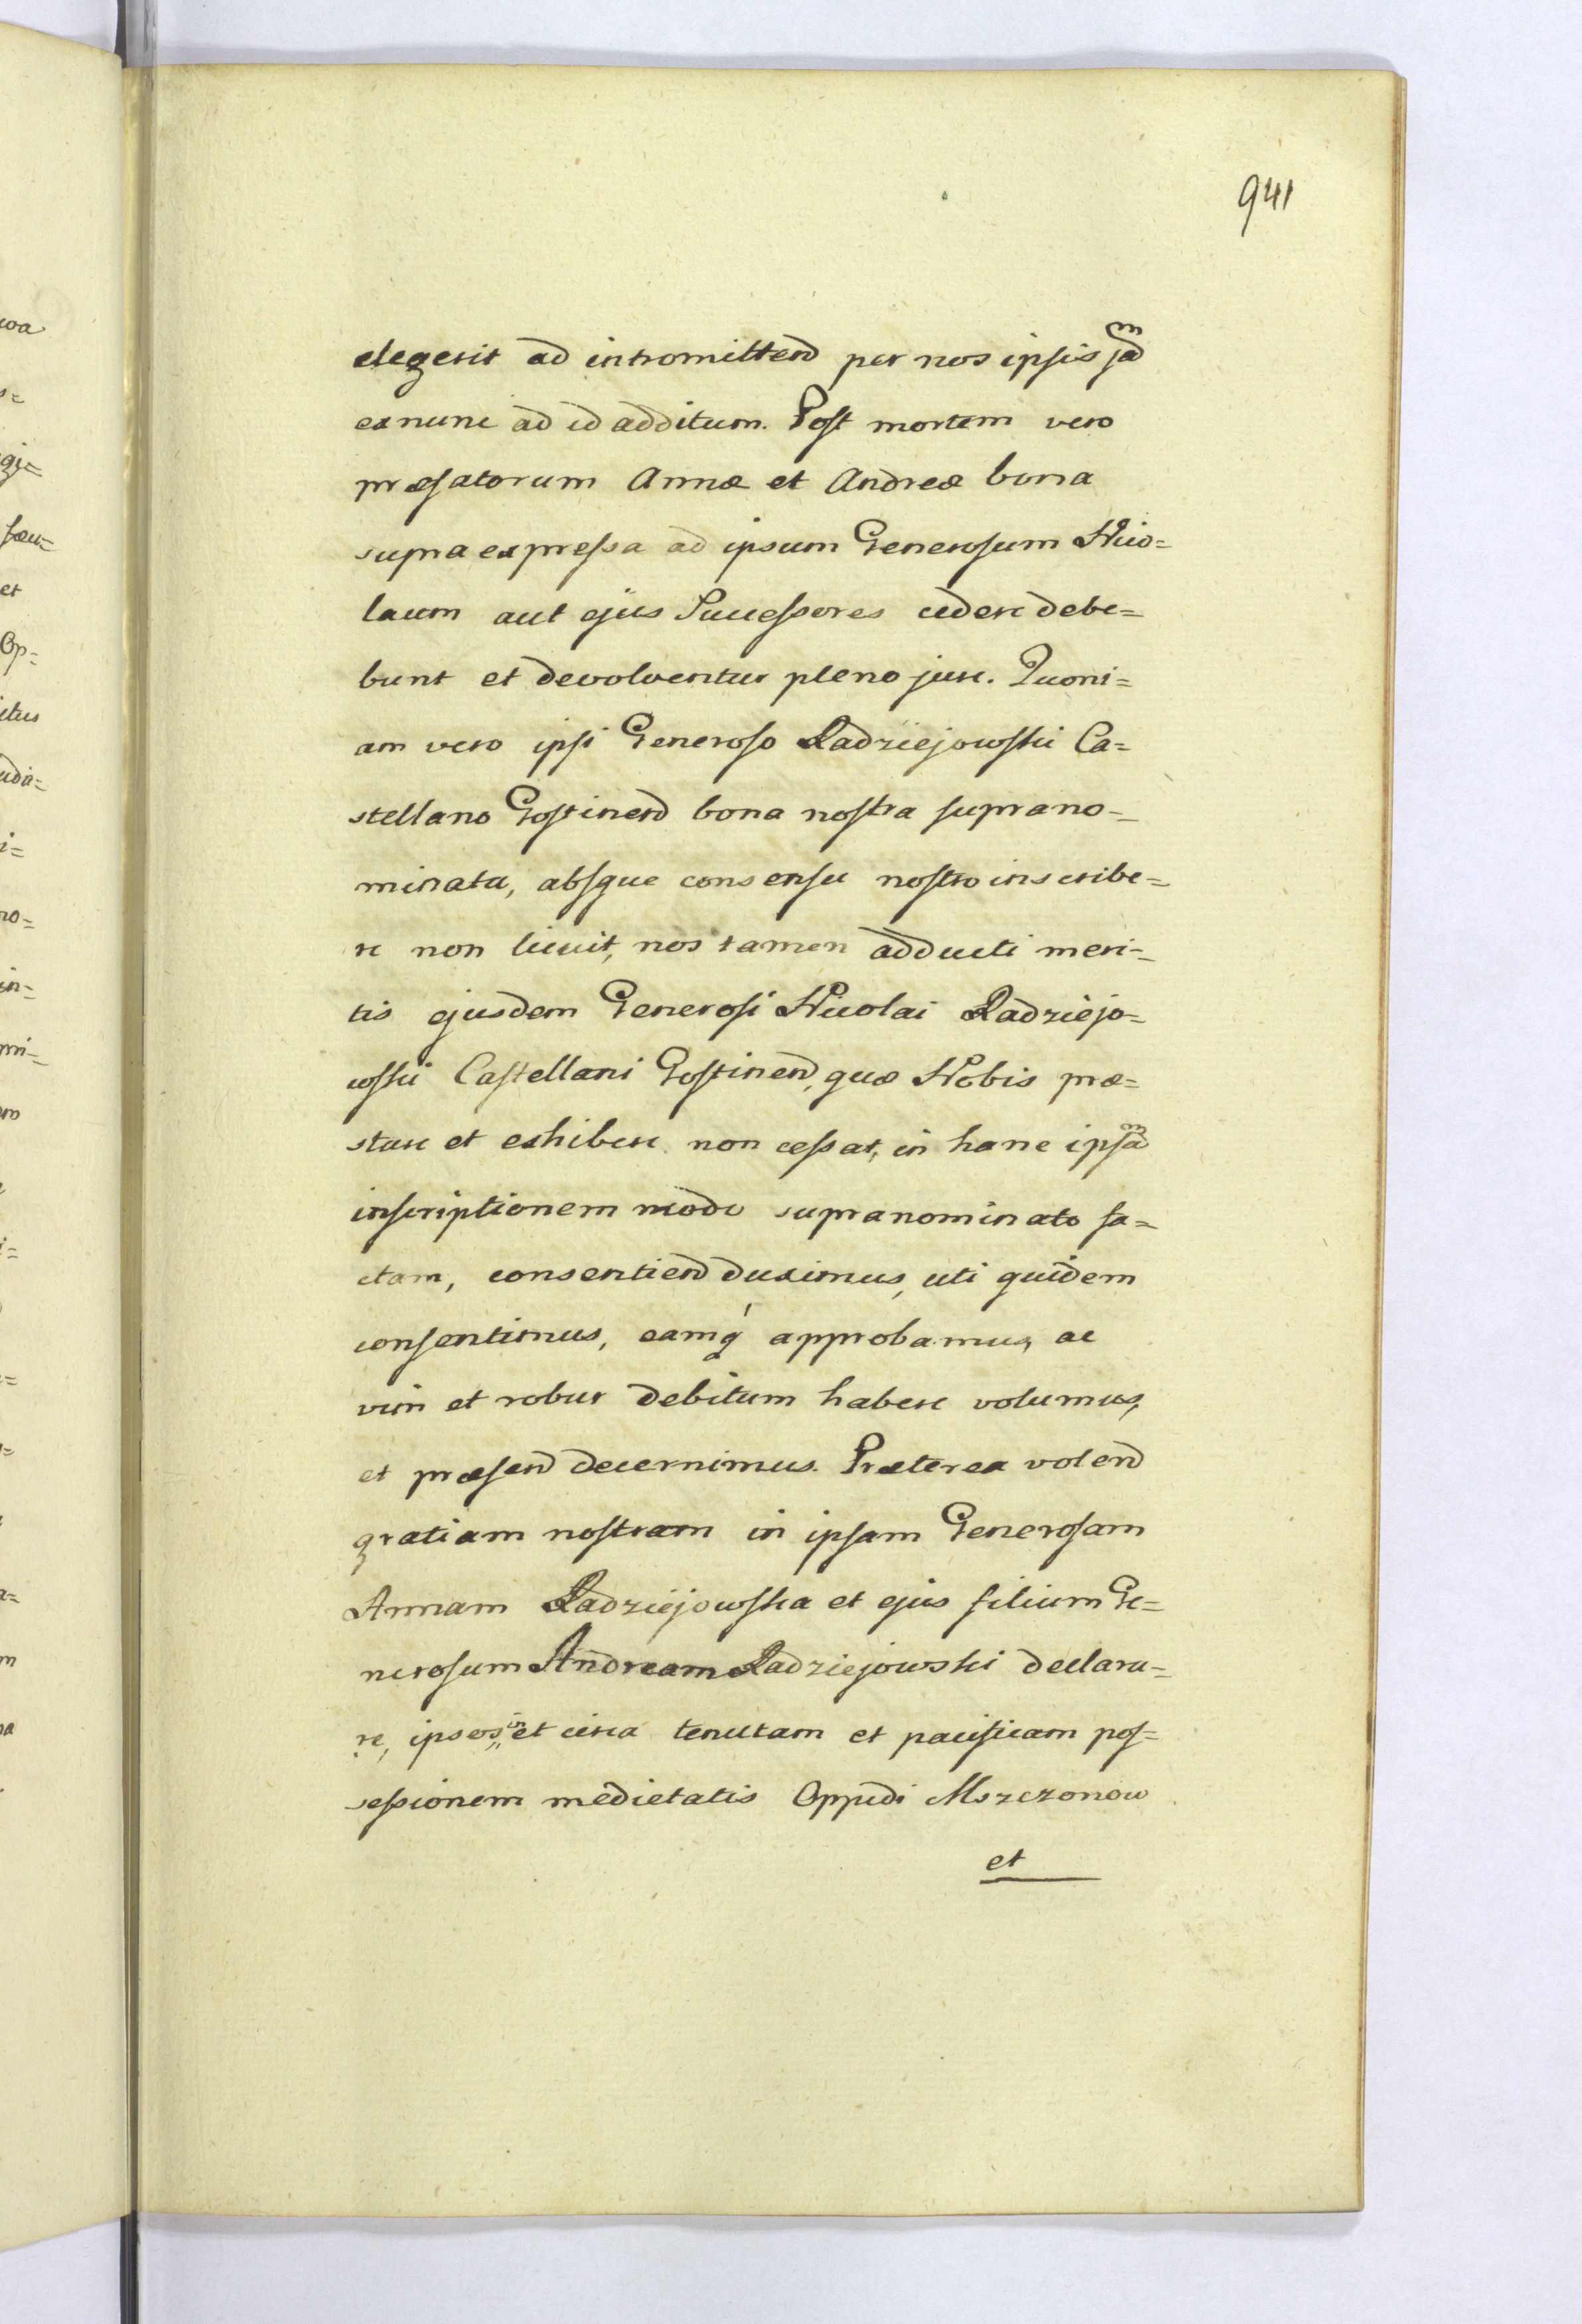 941
elegerit ad intromittend per nos ipsis jam
exnunc ad id additum. Post mortem vero
præfatorum Annæ et Andreæ bona
supra expressa ad ipsum Generosum Nico=
laum aut ejus Successores cedere debe=
bunt et devolventur pleno jure. Quoni=
am vero ipsi Generoso Radziejowski Ca=
stellano Gostinend bona nostra suprano=
minata, absque consensu nostro inscribe=
re non licuit, nos tamen adducti meri=
tis ejusdem Generosi Nicolai Radziejo=
wski Castellani Gostinend, quæ Nobis præ=
stare et exhibere non cessat, in hanc ipsam
inscriptionem modo supranominato fa=
ctam, consentiend duximus, uti quidem
consentimus, eamq́ approbamus, ac
vim et robur debitum habere volumus,
et præsend decernimus. Præterea volend
gratiam nostram in ipsam Generosam
Annam Radziejowska et ejus filium Ge=
nerosum Andream Radziejowski declara=
re, ipsos in et circa tenutam et pacificam pos=
sessionem medietatis Oppidi Mszczonow
et